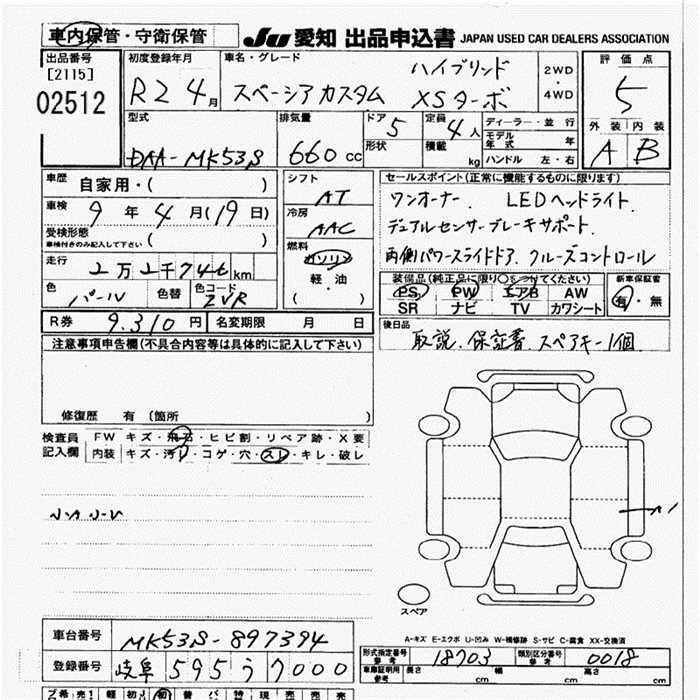 車内保管・守衛保管 JU 愛知 出品申込書 JAPAN USED CAR DEALERS ASSOCIATION
出品番号 [2115] 02512
初度登録年月 R2 4月
車名・グレード スペーシアカスタム ハイブリッド XSターボ
2WD ・ 4WD
評価点 5
外装 A 内装 B
型式 DAA-MK53S
排気量 660cc
ドア 5 形状
定員 4人 積載 kg
ディーラー・並行
モデル年式 年
ハンドル 左・右
車歴 自家用・( )
車検 9年4月(19日)
受検形態 ( )
車検付きのみ記入して下さい
走行 2万2千746km
色 パール 色替 色コード ZVR
シフト AT
冷房 AAC
燃料 ガソリン 軽・油 ( )
セールスポイント(正常に機能するものに限ります)
ワンオーナー. LEDヘッドライト.
デュアルセンサーブレーキサポート.
両側パワースライドドア. クルーズコントロール
装備品(純正品に限り○をつけてください) 新車保証書
PS PW エアB AW 有・無
SR ナビ TV カワシート
R券 9.310円 名変期限 月 日
後日品 取説.保証書.スペアキー1個
注意事項申告欄(不具合内容等は具体的に記入して下さい)
修復歴 有 (箇所 )
検査員記入欄 FW キズ・飛石・ヒビ割・リペア跡・X要
内装 キズ・汚れ・コゲ・穴・スレ・キレ・破レ
スペア
A-キズ E-エクボ U-凹み W-補修跡 S-サビ C-腐食 XX-交換済
車台番号 MK53S-897394
登録番号 岐阜 595 う 7000
形式指定番号 参考 18703 類別区分番号 参考 0018
車庫証明用参考 長さ cm 幅 cm 高さ cm